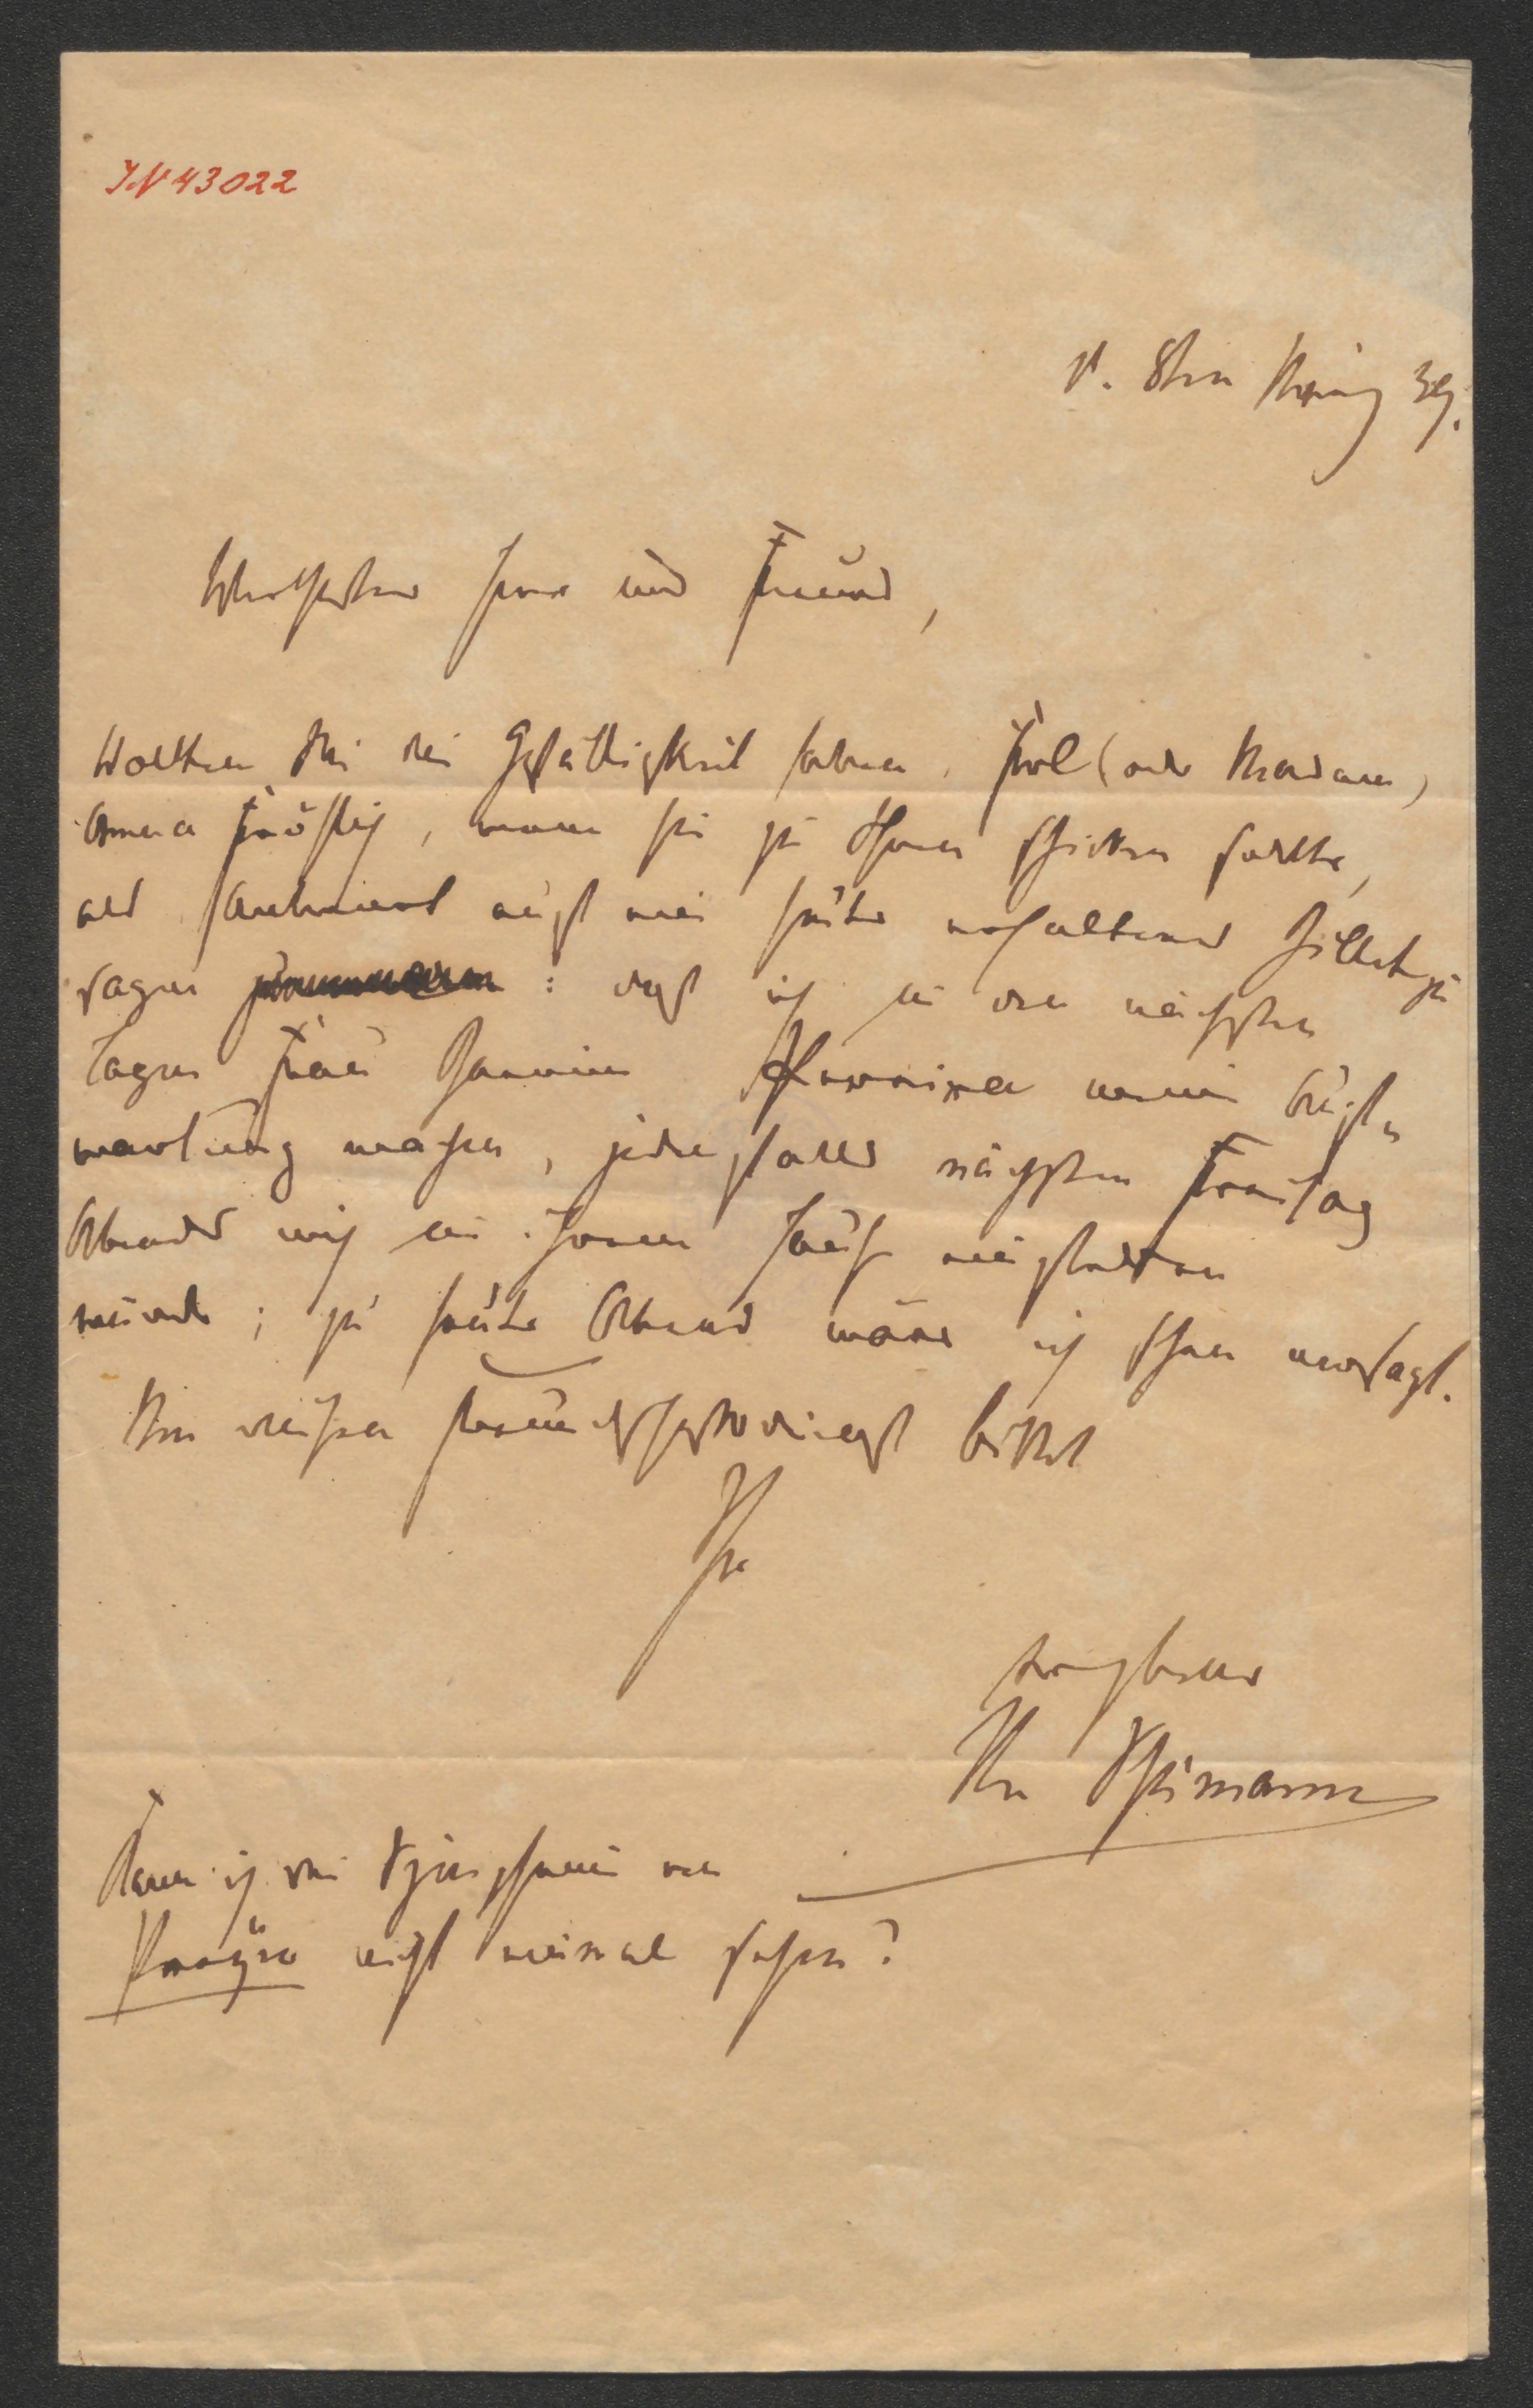 IN 43022
d. 8ten März 39.
Verehrtester Herr und Freund,
Wollten Sie die Gefälligkeit haben, Frl (oder Madam)
Anna Fröhlich, wenn sie zu Ihnen schicken sollte,
als Antwort auf ein heute erhaltenes Billet zu
sagen : daß ich in den nächsten
Tagen Frau Baronin meine Aufwartung
machen, jedenfalls nächsten Freitag
Abends mich in ihrem Hause einstellen
würde; zu heute Abend wäre ich schon versagt.
Um diesen Freundschaftsdienst bittet
Ihr
ergebener
Kann ich die von
nicht einmal sehen?